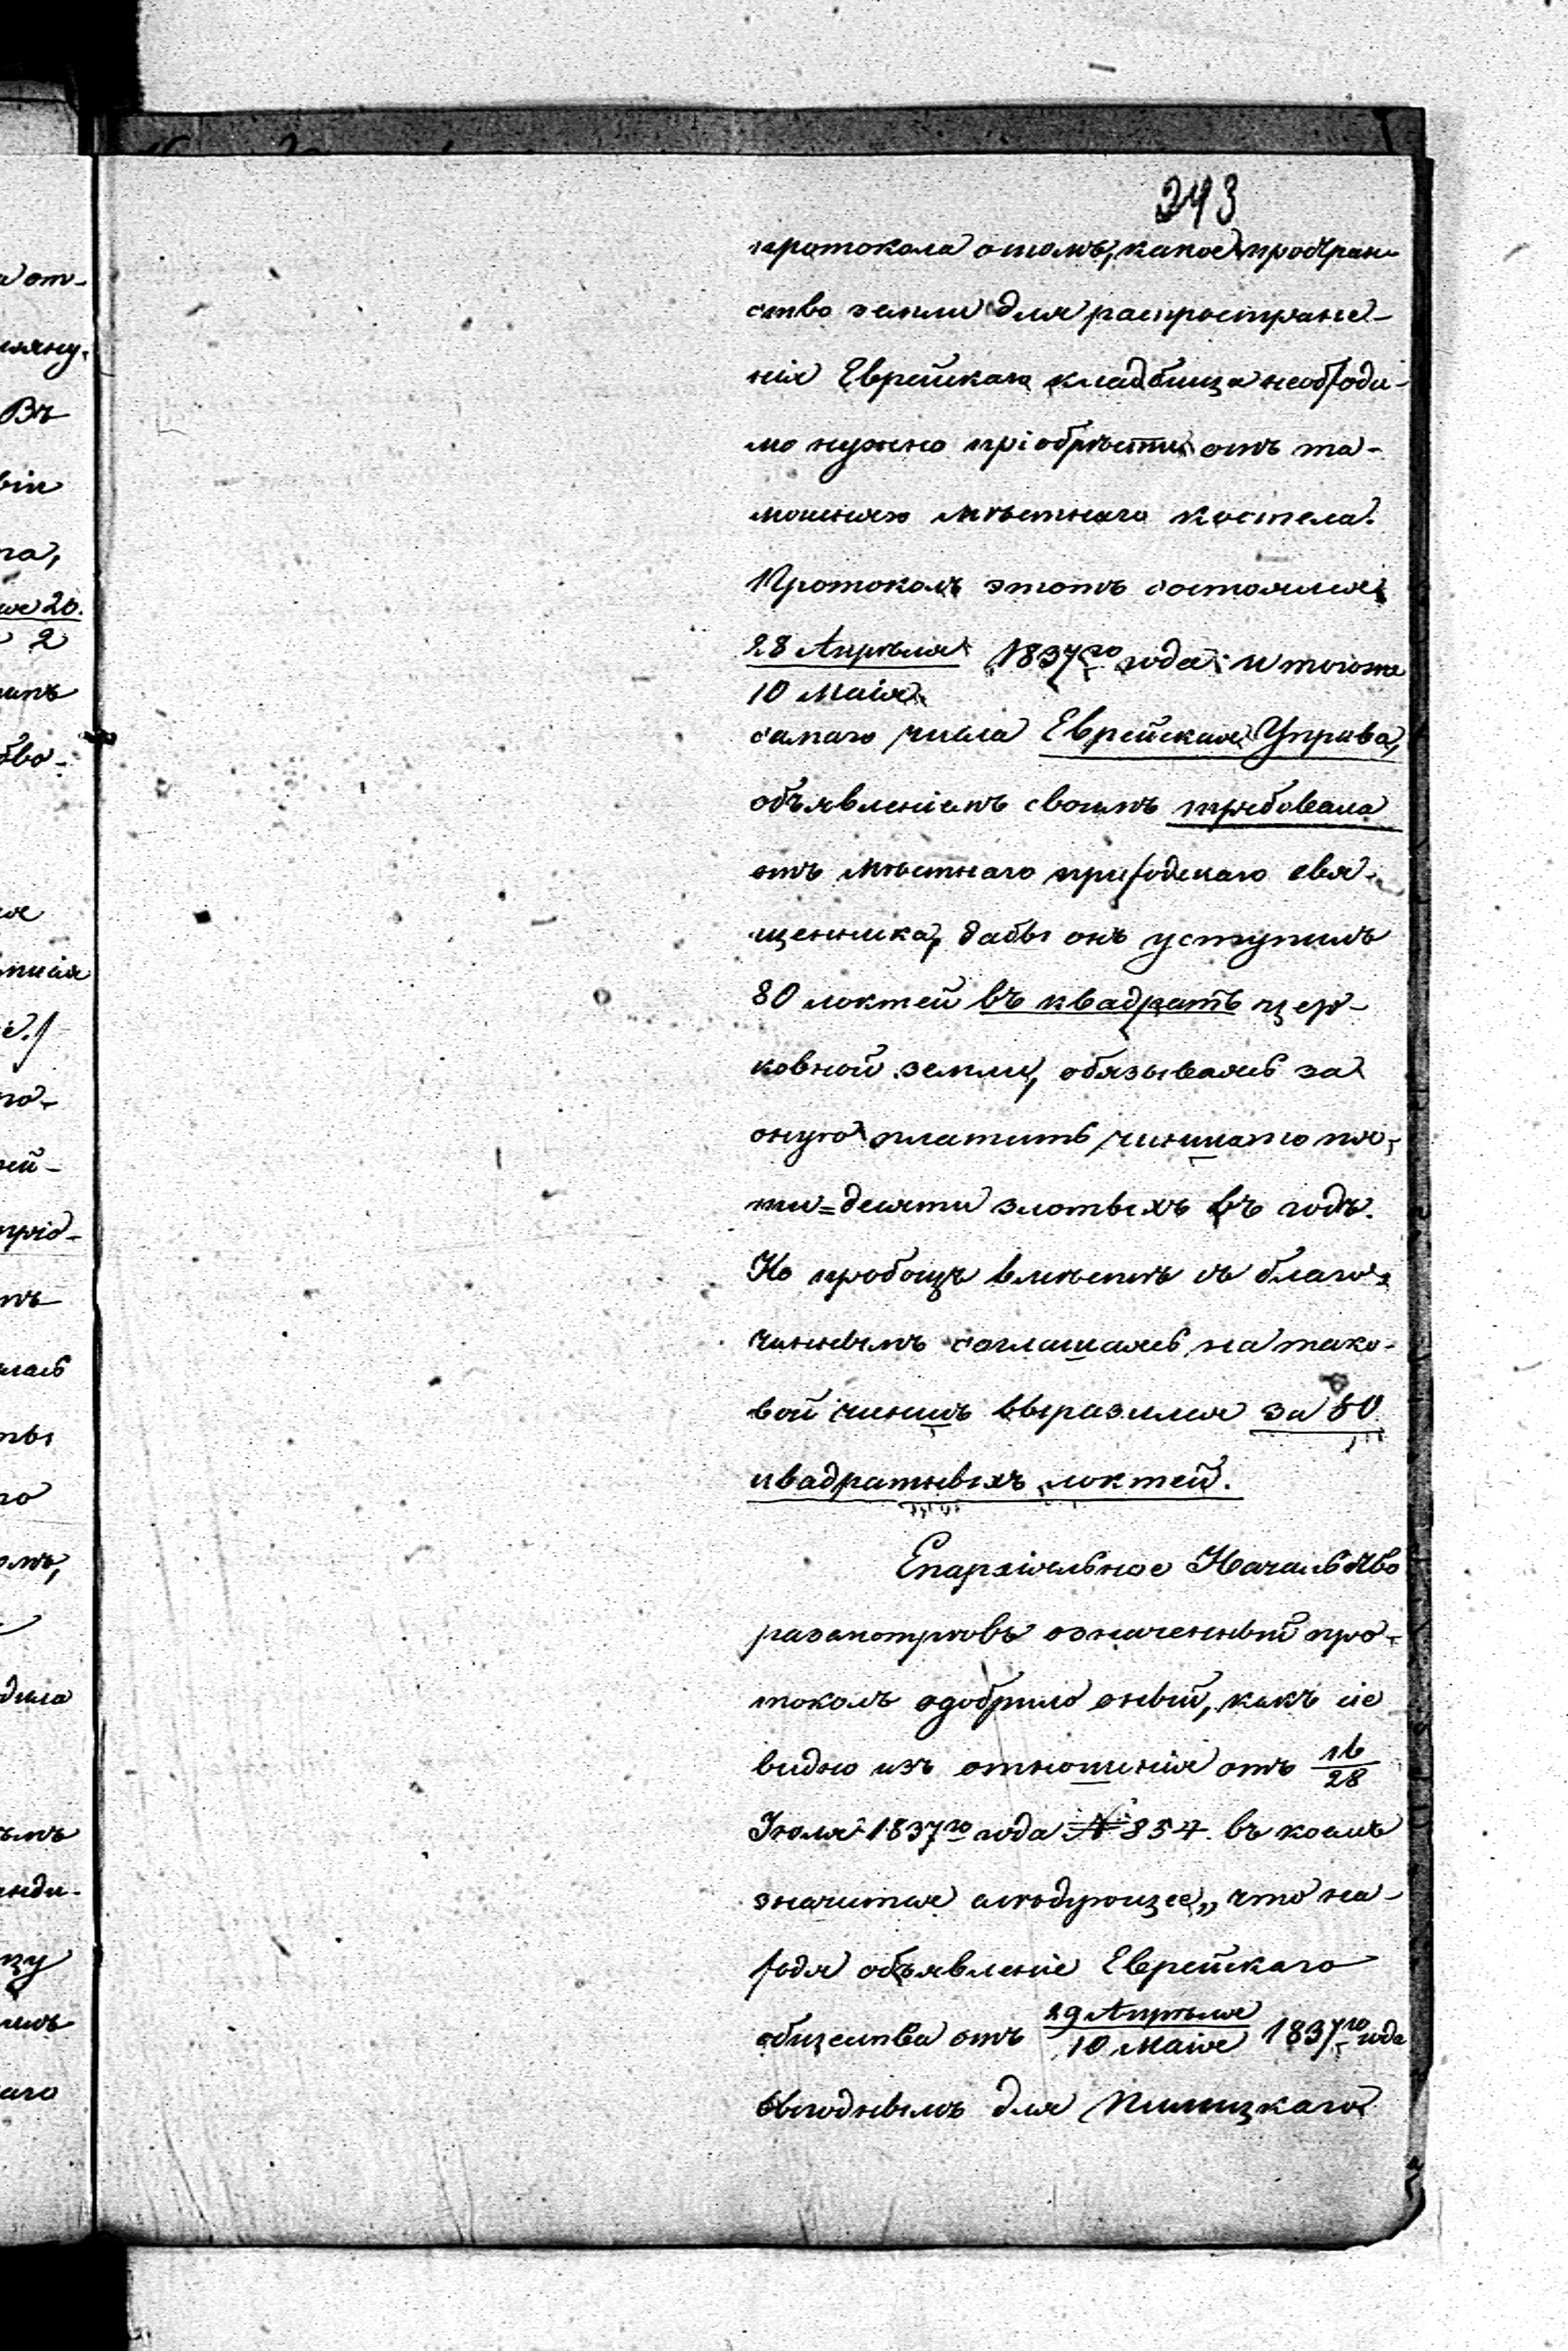 243
протокола отомъ, какое простран-
ство земли для распростране-
нія Еврейскаго кладбища необходи-
мо нужно пріобрѣсти отъ та-
мошняго мѣстнаго костела.
Протоколъ этотъ состоялся
28 Апрѣля / 10 Маія 1837го года и тогоже
самаго числа Еврейская Управа,
объявленіемъ своимъ требовала
отъ мѣстнаго приходскаго свя-
щенника, дабы онъ уступилъ
80 локтей въ квадратѣ цер-
ковной земли, обязываясь за
оную платить чиншаго пя-
ти=десяти злотыхъ въ годъ.
Но пробощъ вмѣстѣ съ благо-
чиннымъ соглашаясь на тако-
вой чиншъ выразился за 80
квадратныхъ локтей.
Епархіальное Начальство
разсмотрѣвъ означенный про-
токолъ одобрило оный, какъ сіе
видно изъ отношенія отъ 16/28
Іюля 1837го года № 854. въ коемъ
значится слѣдующее „что на-
ходя объявленіе Еврейскаго
общества отъ 29 Апрѣля / 10 Маія 1837го года
выгоднымъ для Пилицкаго
а от-
Въ
та,
20.
2